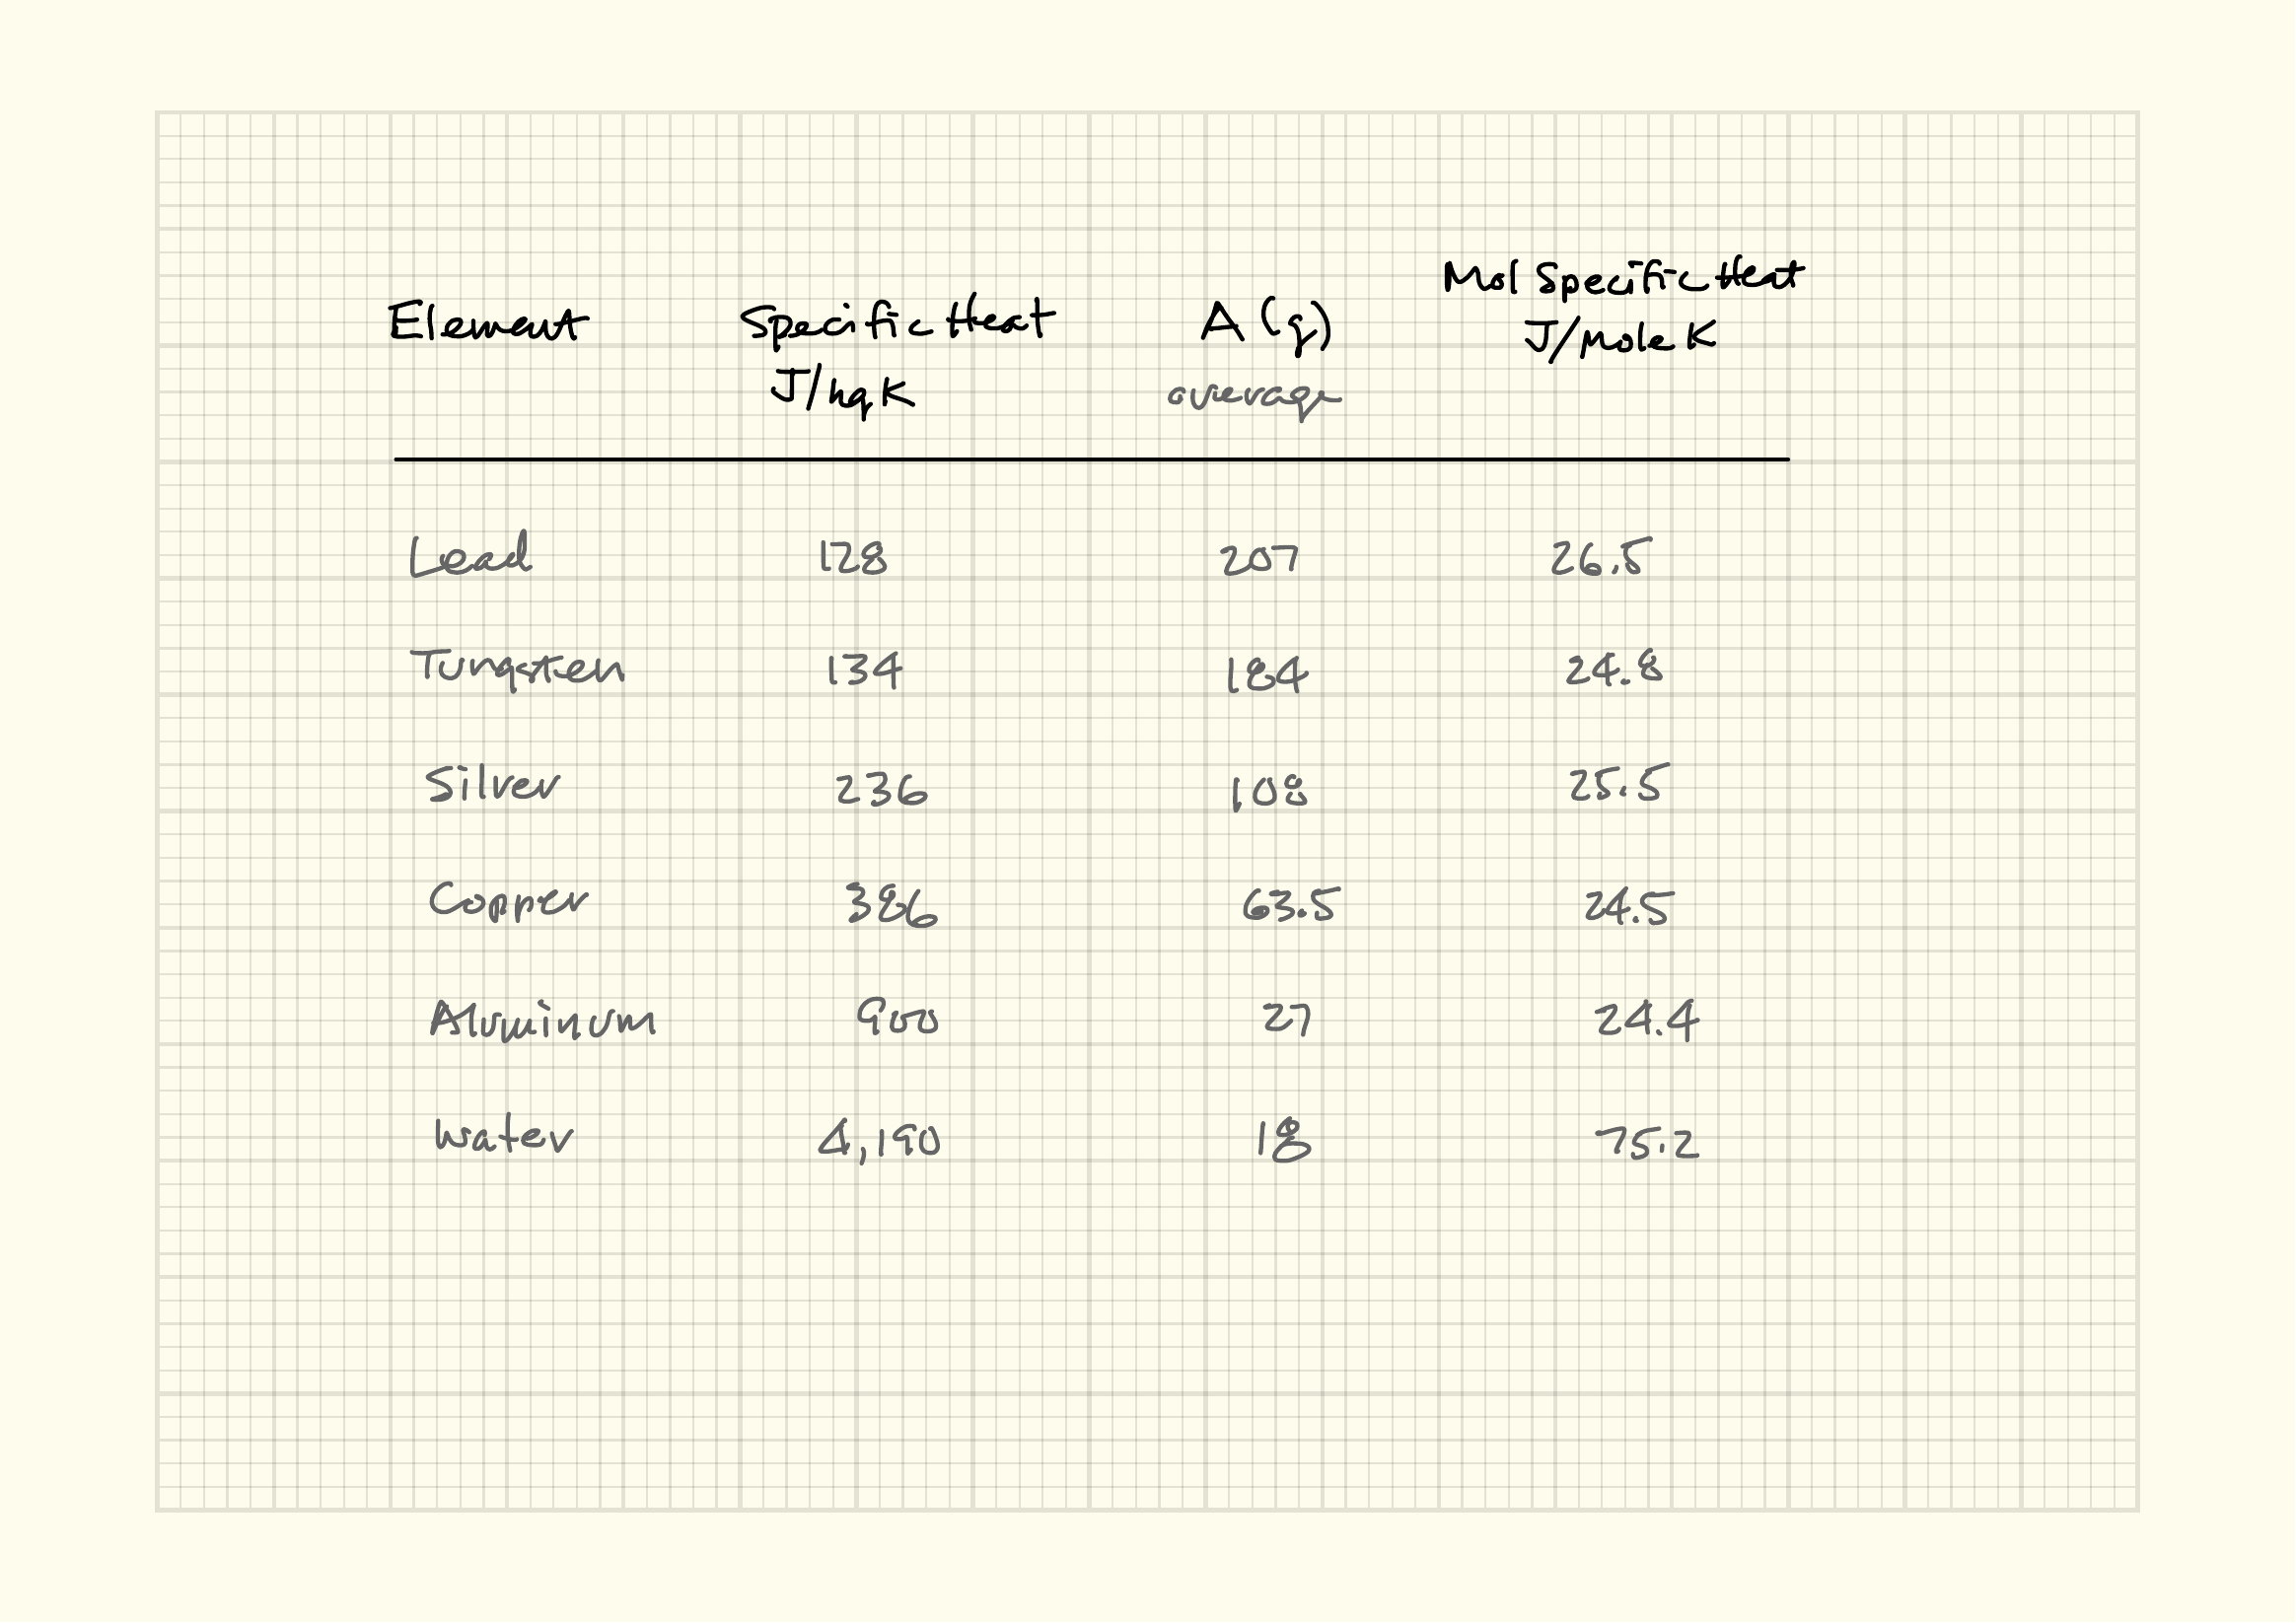 Element Specific Heat A (g) Mol Specific Heat
J/kg K average J/Mole K
Lead 128 207 26.5
Tungsten 134 184 24.8
Silver 236 108 25.5
Copper 386 63.5 24.5
Aluminum 900 27 24.4
Water 4,190 18 75.2